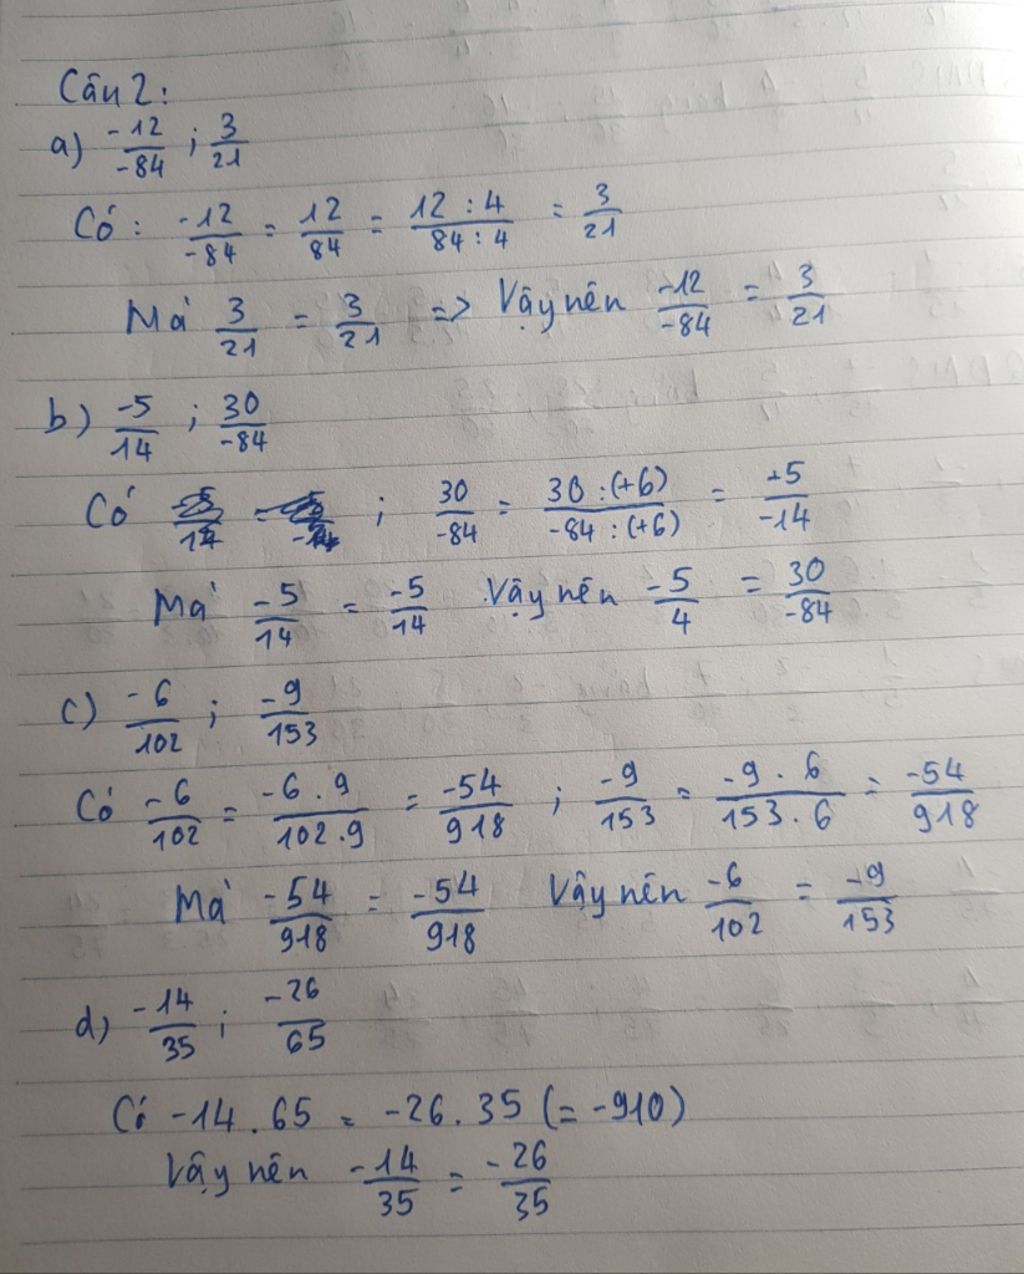 Câu 2:
a) -12/-84 ; 3/21
Có : -12/-84 = 12/84 = 12 : 4/84 : 4 = 3/21
Mà 3/21 = 3/21 => Vậy nên -12/-84 = 3/21
b) -5/14 ; 30/-84
Có ; 30/-84 = 30 : (+6)/-84 : (+6) = +5/-14
Mà -5/14 = -5/14 Vậy nên -5/4 = 30/-84
c) -6/102 ; -9/153
Có -6/102 = -6 . 9/102 . 9 = -54/918 ; -9/153 = -9 . 6/153 . 6 = -54/918
Mà -54/918 = -54/918 Vậy nên -6/102 = -9/153
d) -14/35 ; -26/65
Có -14 . 65 = -26 . 35 (= -910)
Vậy nên -14/35 = -26/35